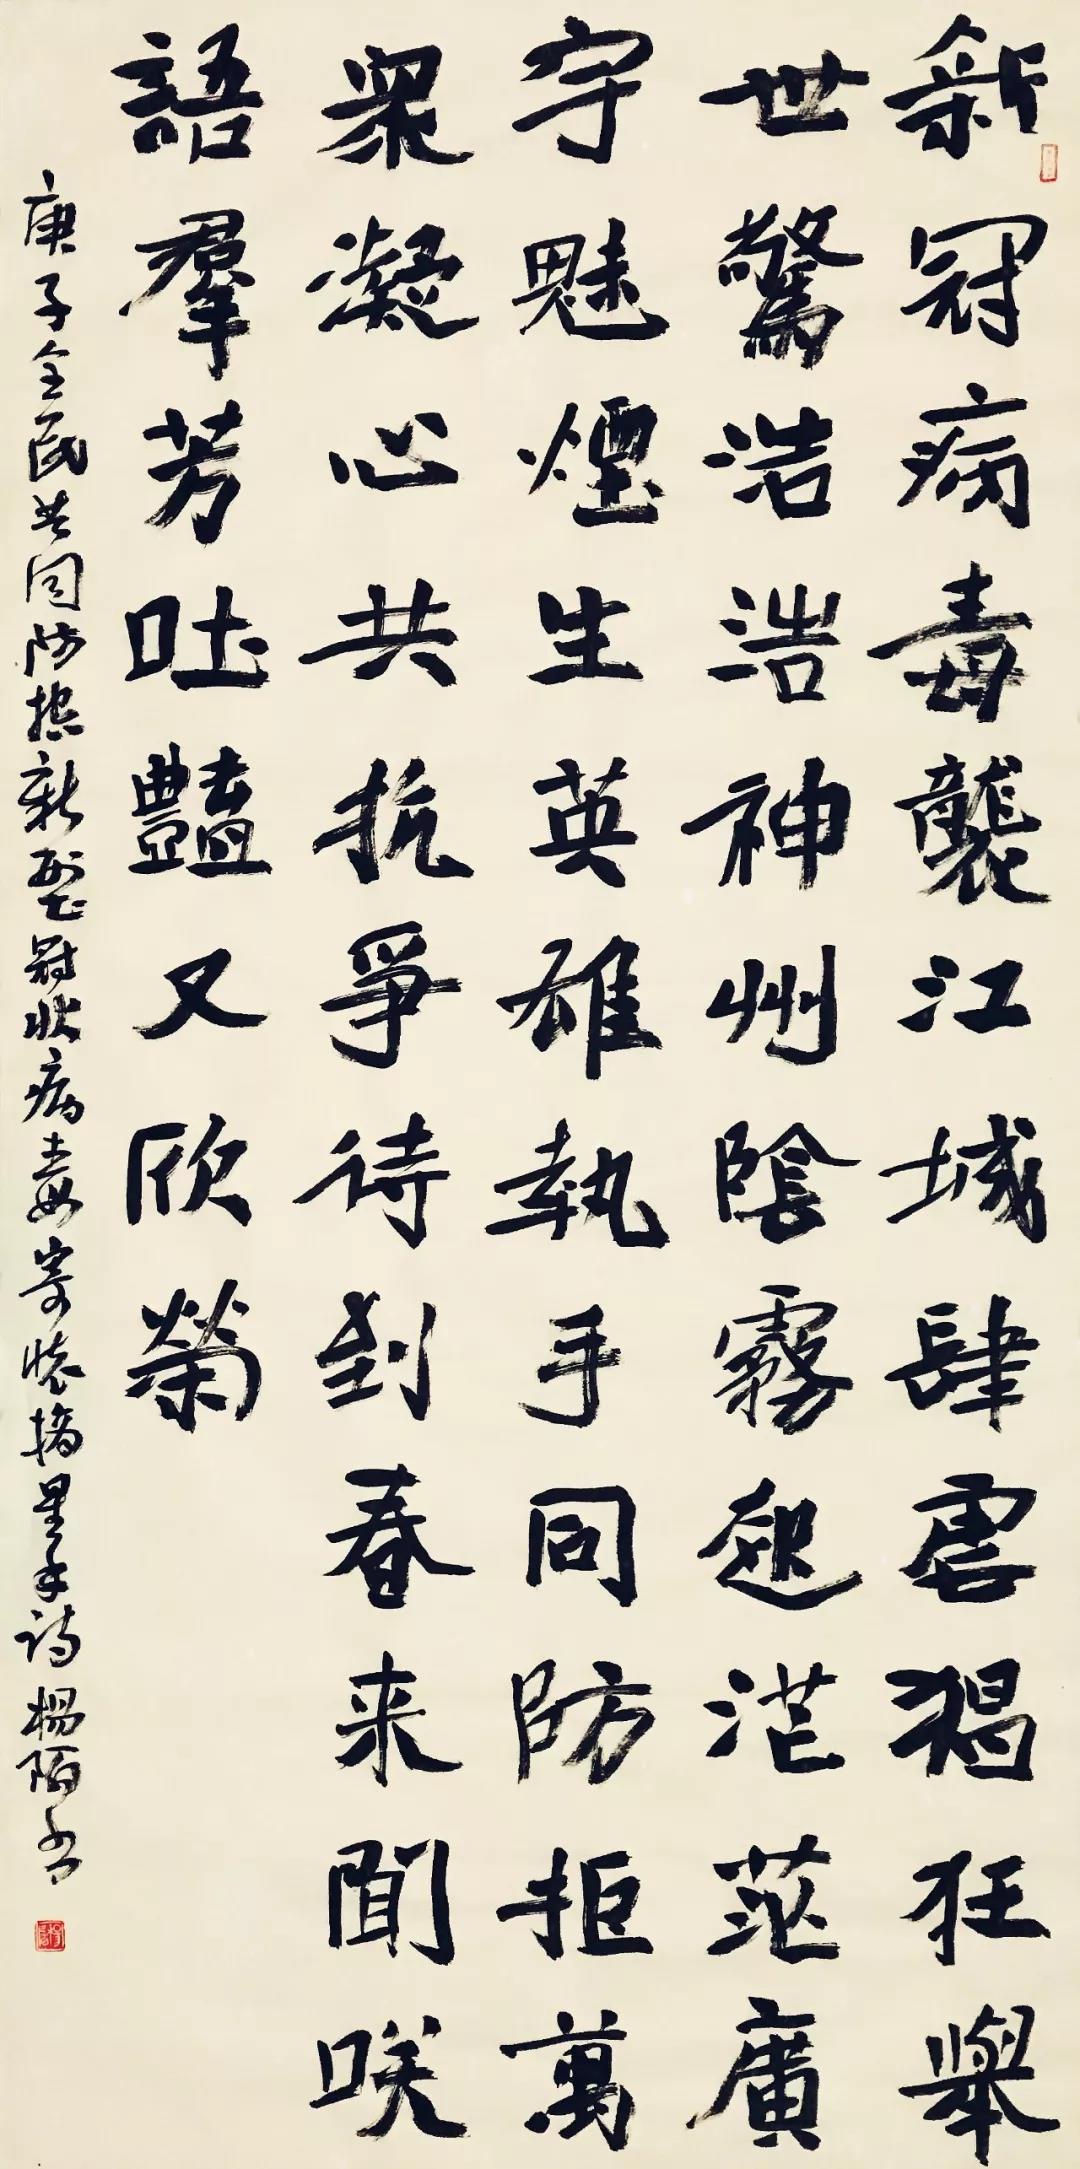 新冠病毒襲江城肆虐猖狂舉
世驚浩浩神州陰霧起茫茫廣
宇魅煙生英雄執手同防拒萬
眾凝心共抗爭待到春来聞咲
語羣芳吐豔又欣榮
庚子全民共同防控新型冠狀病毒寄懷摘星手詩楊陌書